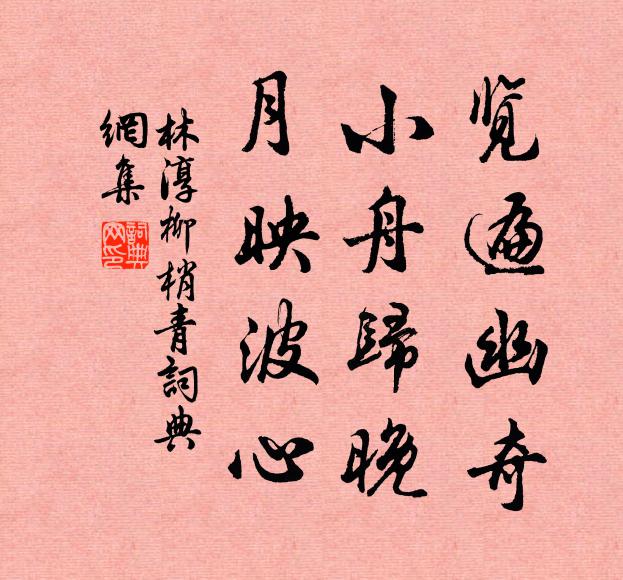 览遍幽奇
小舟歸晚
月映波心
林淳柳梢青詞典
網集
詞典
网印